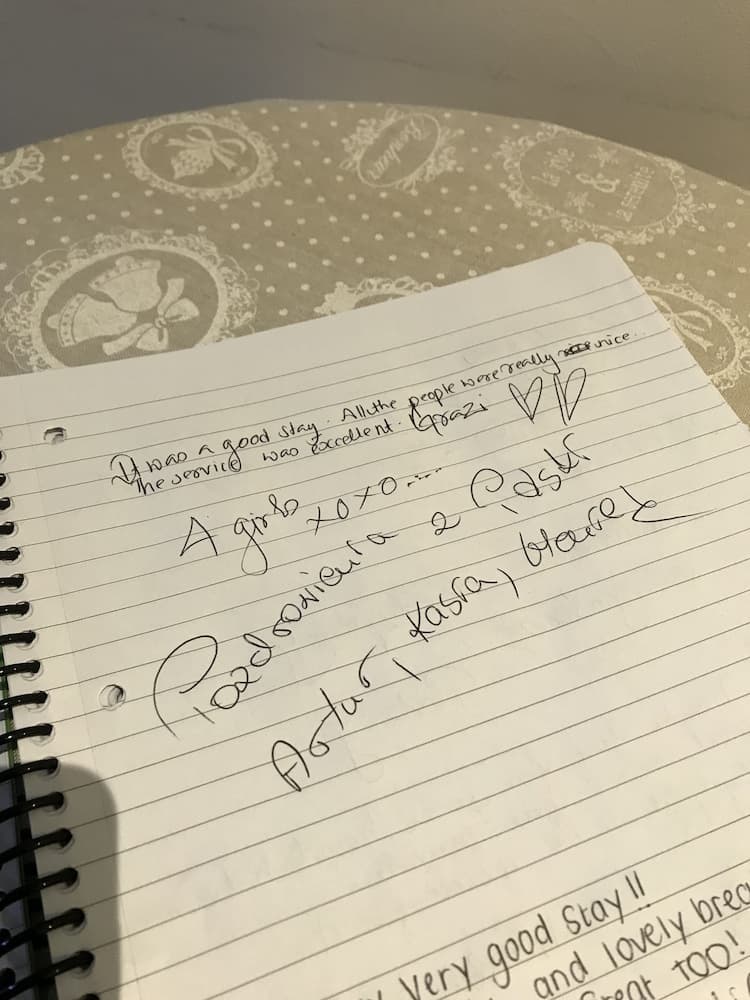 Bonheur
la joie
&
It was a good stay. All the people were really nice...
The service was excellent. Grazi
A girls xoxo....
Pozdrowienia z Polski
Artur, Kasia,
Very good stay!!
and lovely
great too!